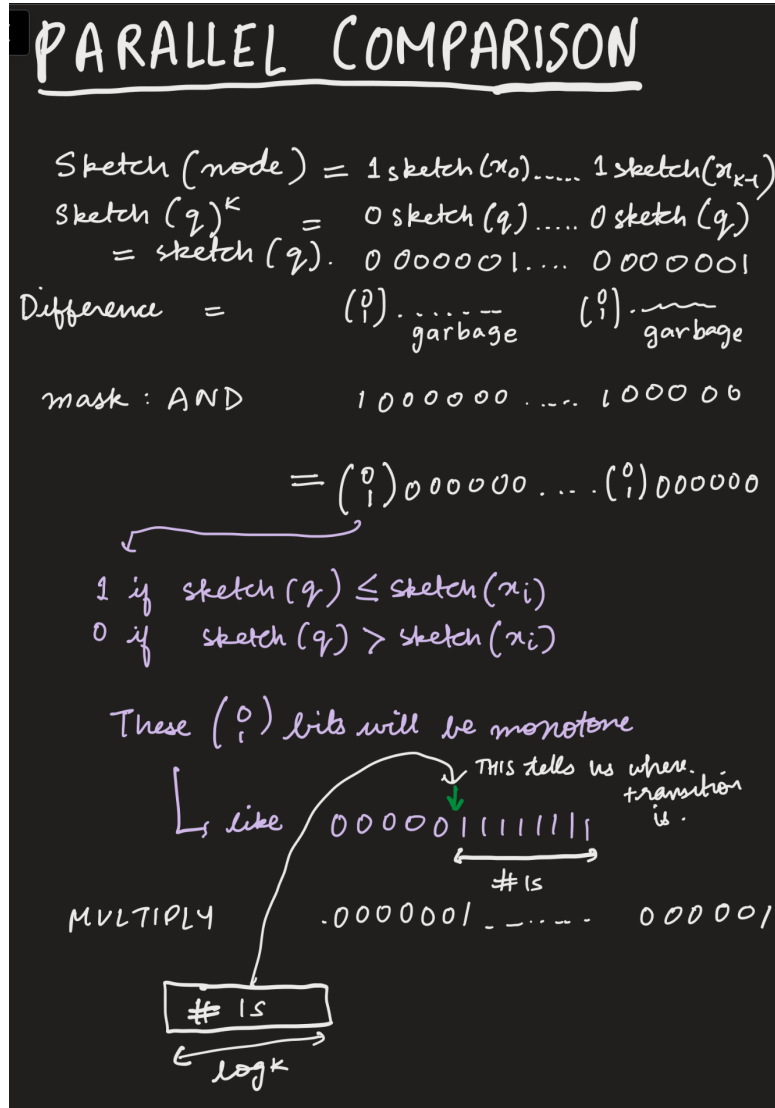 PARALLEL COMPARISON
Sketch (node) = 1 sketch(x₀)..... 1 sketch(x_{k-1})
Sketch (q)^k = 0 sketch (q)..... 0 sketch (q)
= sketch (q). 0 000001.... 0 000001
Difference = (0 1)....... (0 1).
garbage garbage
mask : AND 1 000000..... 1 00000
= (0 1) 000000.... (0 1) 000000
1 if sketch (q) ≤ sketch (xᵢ)
0 if sketch (q) > sketch (xᵢ)
These (0 1) bits will be monotone
THIS tells us where
transition
is.
↳ like 000001111111
#1s
MULTIPLY .0000001....... 000001
# 1s
log k